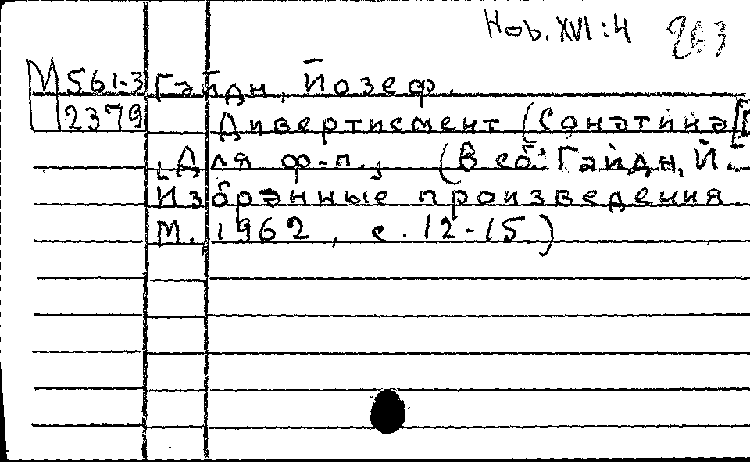 Hob. XVI:4 263
М 561-3 Гайдн, Йозеф.
2379 Дивертисмент (Сонатина)
[Для ф-п.] (В сб: Гайдн, Й.
Избранные произведения.
М., 1962, с. 12-15)